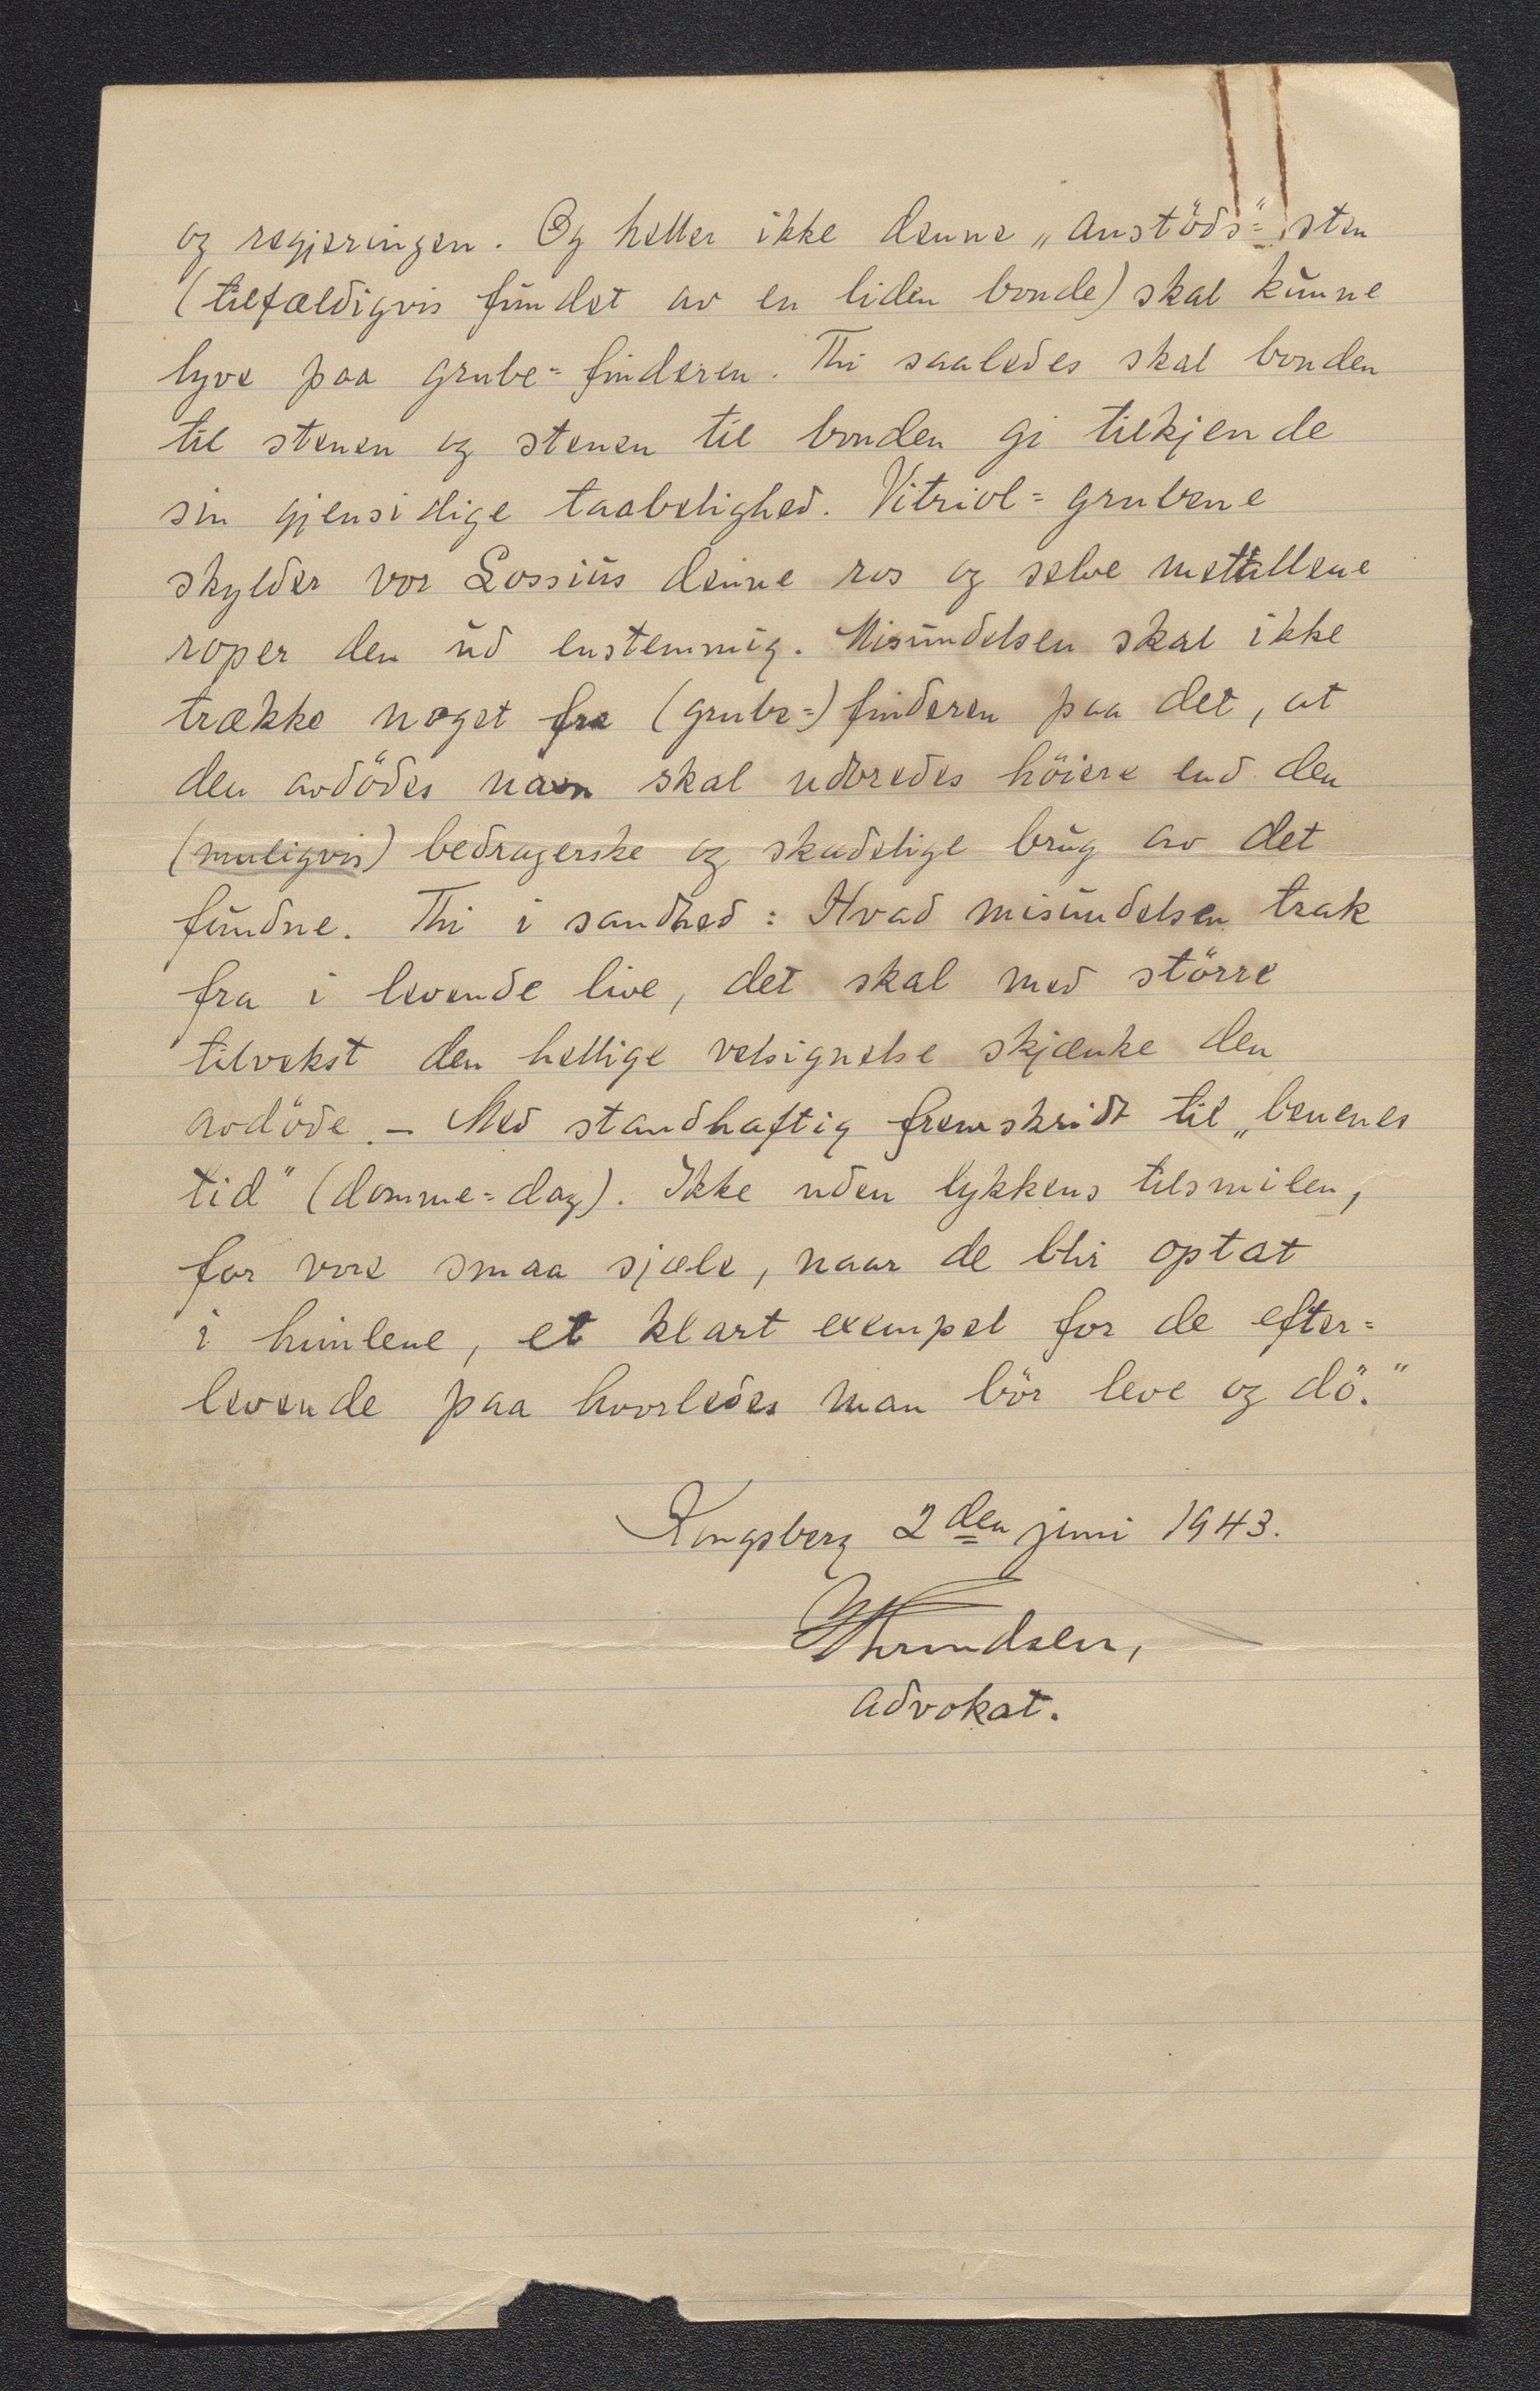 og regjeringen. Og heller ikke denne „anstöds"= sten
(tilfældigvis fundet av en liden bonde) skal kunne
lyve paa grube=finderen. Thi saaledes skal bonden
til stenen og stenen til bonden gi tilkjende
sin gjensidige taabelighed. Vitriol=grubene
skylder vor Lossius denne ros og selve metallene
roper den ud enstemmig. Misundelsen skal ikke
trække noget fra (grube=) finderen paa det, at
den avdödes navn skal udbredes höiere end den
(muligvis) bedragerske og skadelige brug av det
fundne. Thi i sandhed: Hvad misundelsen trak
fra i levende live, det skal med större
tilvekst den hellige velsignelse skjænke den
avdöde. – Med standhaftig fremskridt til „benenes
tid" (domme=dag). Ikke uden lykkens tilsmilen,
for vore smaa sjæle, naar de blir optat
i himlene, et klart exempel for de efter=
levende paa hvorledes man bör leve og dö."
Kongsberg 2den juni 1943.
Thrundsen,
advokat.